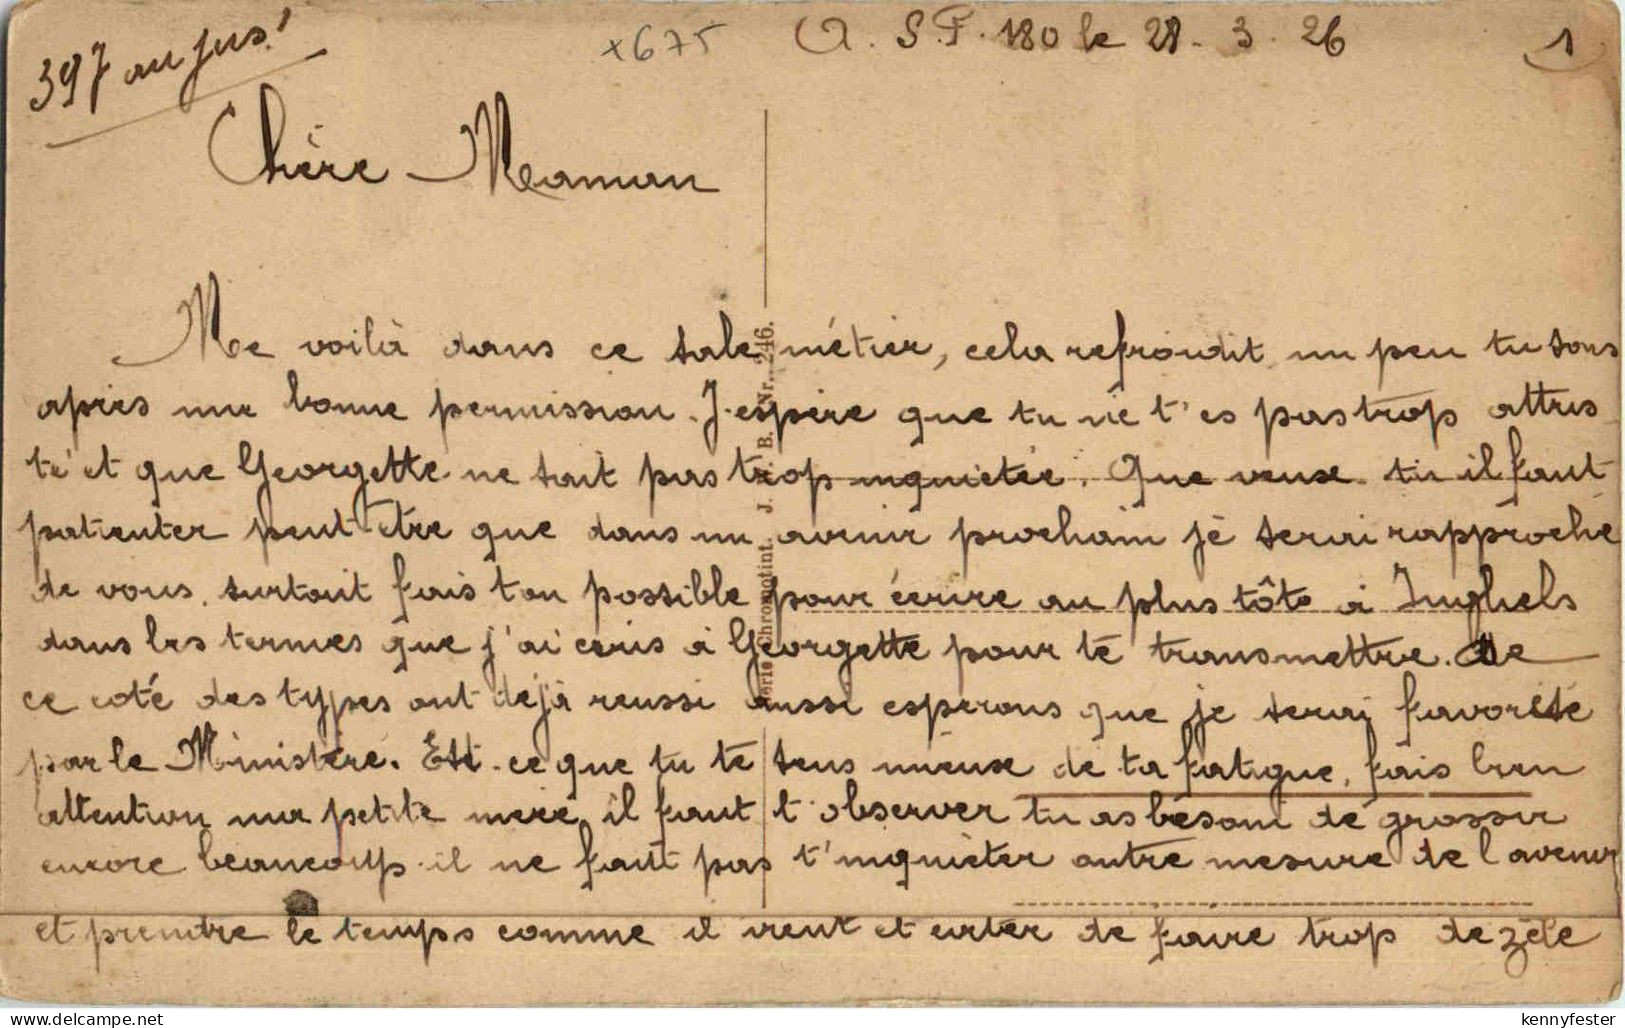 397 au jus!
x675
A. S.P. 180 le 28. 3. 26
1
Chère Maman
Me voilà dans ce sale métier, cela refroidit un peu tu sais
après une bonne permission. J'espère que tu ne t'es pas trop attris
té et que Georgette ne soit pas trop inquietée. Que veux tu il faut
patienter peut-être que dans un avenir prochain je serai rapproché
de vous. surtout fais ton possible pour écrire au plus tôte à Inghels
dans les termes que j'ai ecris à Georgette pour te transmettre. De
ce coté des types ont déjà reussi aussi esperons que je serai favorisé
par le Ministère. Est-ce que tu te sens mieux de ta fatigue, fais bien
attention ma petite mère, il faut t'observer tu as besoin de grossir
encore beaucoup il ne faut pas t'inquieter outre mesure de l'avenir
et prendre le temps comme il vient et eviter de faire trop de zèle
Serie Chromotint. J. B. Nr. 246.
kennyfester